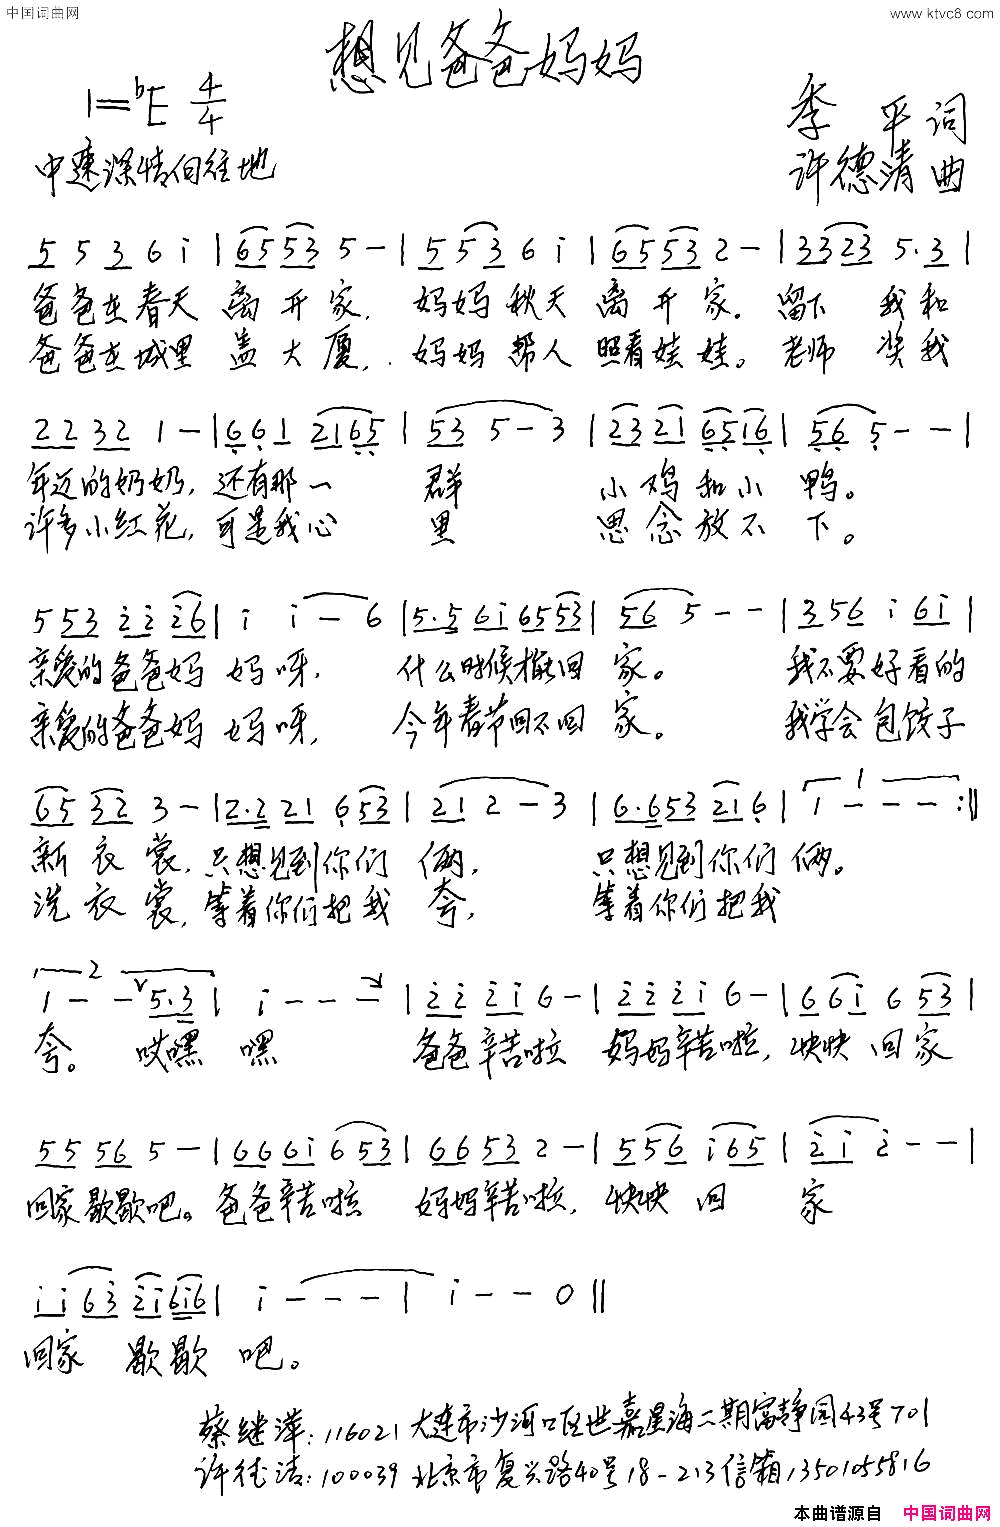 中国词曲网 www.ktvc8.com
想见爸爸妈妈
1=♭E 4/4
李平词
中速深情向往地
许德清曲
5 5 3 6 i | 6553 5 - | 5 53 6 i | 6553 2 - | 3323 5.3 |
爸爸在春天 离开家, 妈妈秋天 离开家。留下 我和
爸爸在城里 盖大厦, 妈妈帮人 照看娃娃。老师 奖我
22 32 1 - | 6 6 1 2165 | 53 5 - 3 | 23 21 6516 | 56 5 - - |
年迈的奶奶, 还有那一 群 小鸡和小 鸭。
许多小红花, 可是我心 里 思念放不 下。
5 53 2 2 26 | i i - 6 | 5.5 6i 6553 | 56 5 - - | 356 i 6i |
亲爱的爸爸妈 妈呀, 什么时候才能回 家。 我不要好看的
亲爱的爸爸妈 妈呀, 今年春节回不回 家。 我学会包饺子
65 32 3 - | 2.2 21 6 53 | 21 2 - 3 | 6.653 216 | 1 - - - :||
新衣裳, 只想见到你们 俩, 只想见到你们俩。
洗衣裳, 等着你们把我 夸, 等着你们把我
1 - - 5.3 | i - - - | 2 2 2 i 6 - | 2 2 2 i 6 - | 66i 6 53 |
夸。 哎嘿 嘿 爸爸辛苦啦 妈妈辛苦啦, 快快 回家
55 56 5 - | 666i 653 | 66 53 2 - | 5 56 i65 | 2 i 2 - - |
回家歇歇吧。爸爸辛苦啦 妈妈辛苦啦, 快快 回 家
i i 63 2i6i6 | i - - - | i - - 0 ||
回家 歇歇 吧。
蔡继萍: 116021 大连市沙河口区世嘉星海二期富静园43号701
许德清: 100039 北京市复兴路40号18-213信箱 13501055816
本曲谱源自 中国词曲网